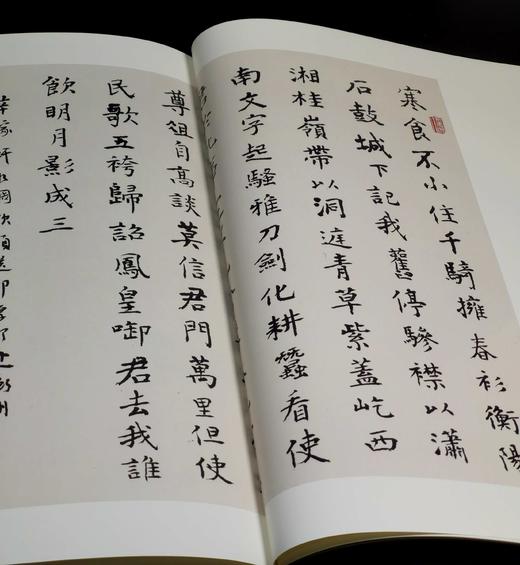 寒食不小住千騎擁春衫衡陽
石鼓城下記我舊停驂襟以瀟
湘桂嶺帶以洞庭青草紫蓋屹西
南文字起騷雅刀劍化耕蠶看使
尊俎自高談莫信君門萬里但使
民歌五袴歸詔鳳皇啣君去我誰
飲明月影成三